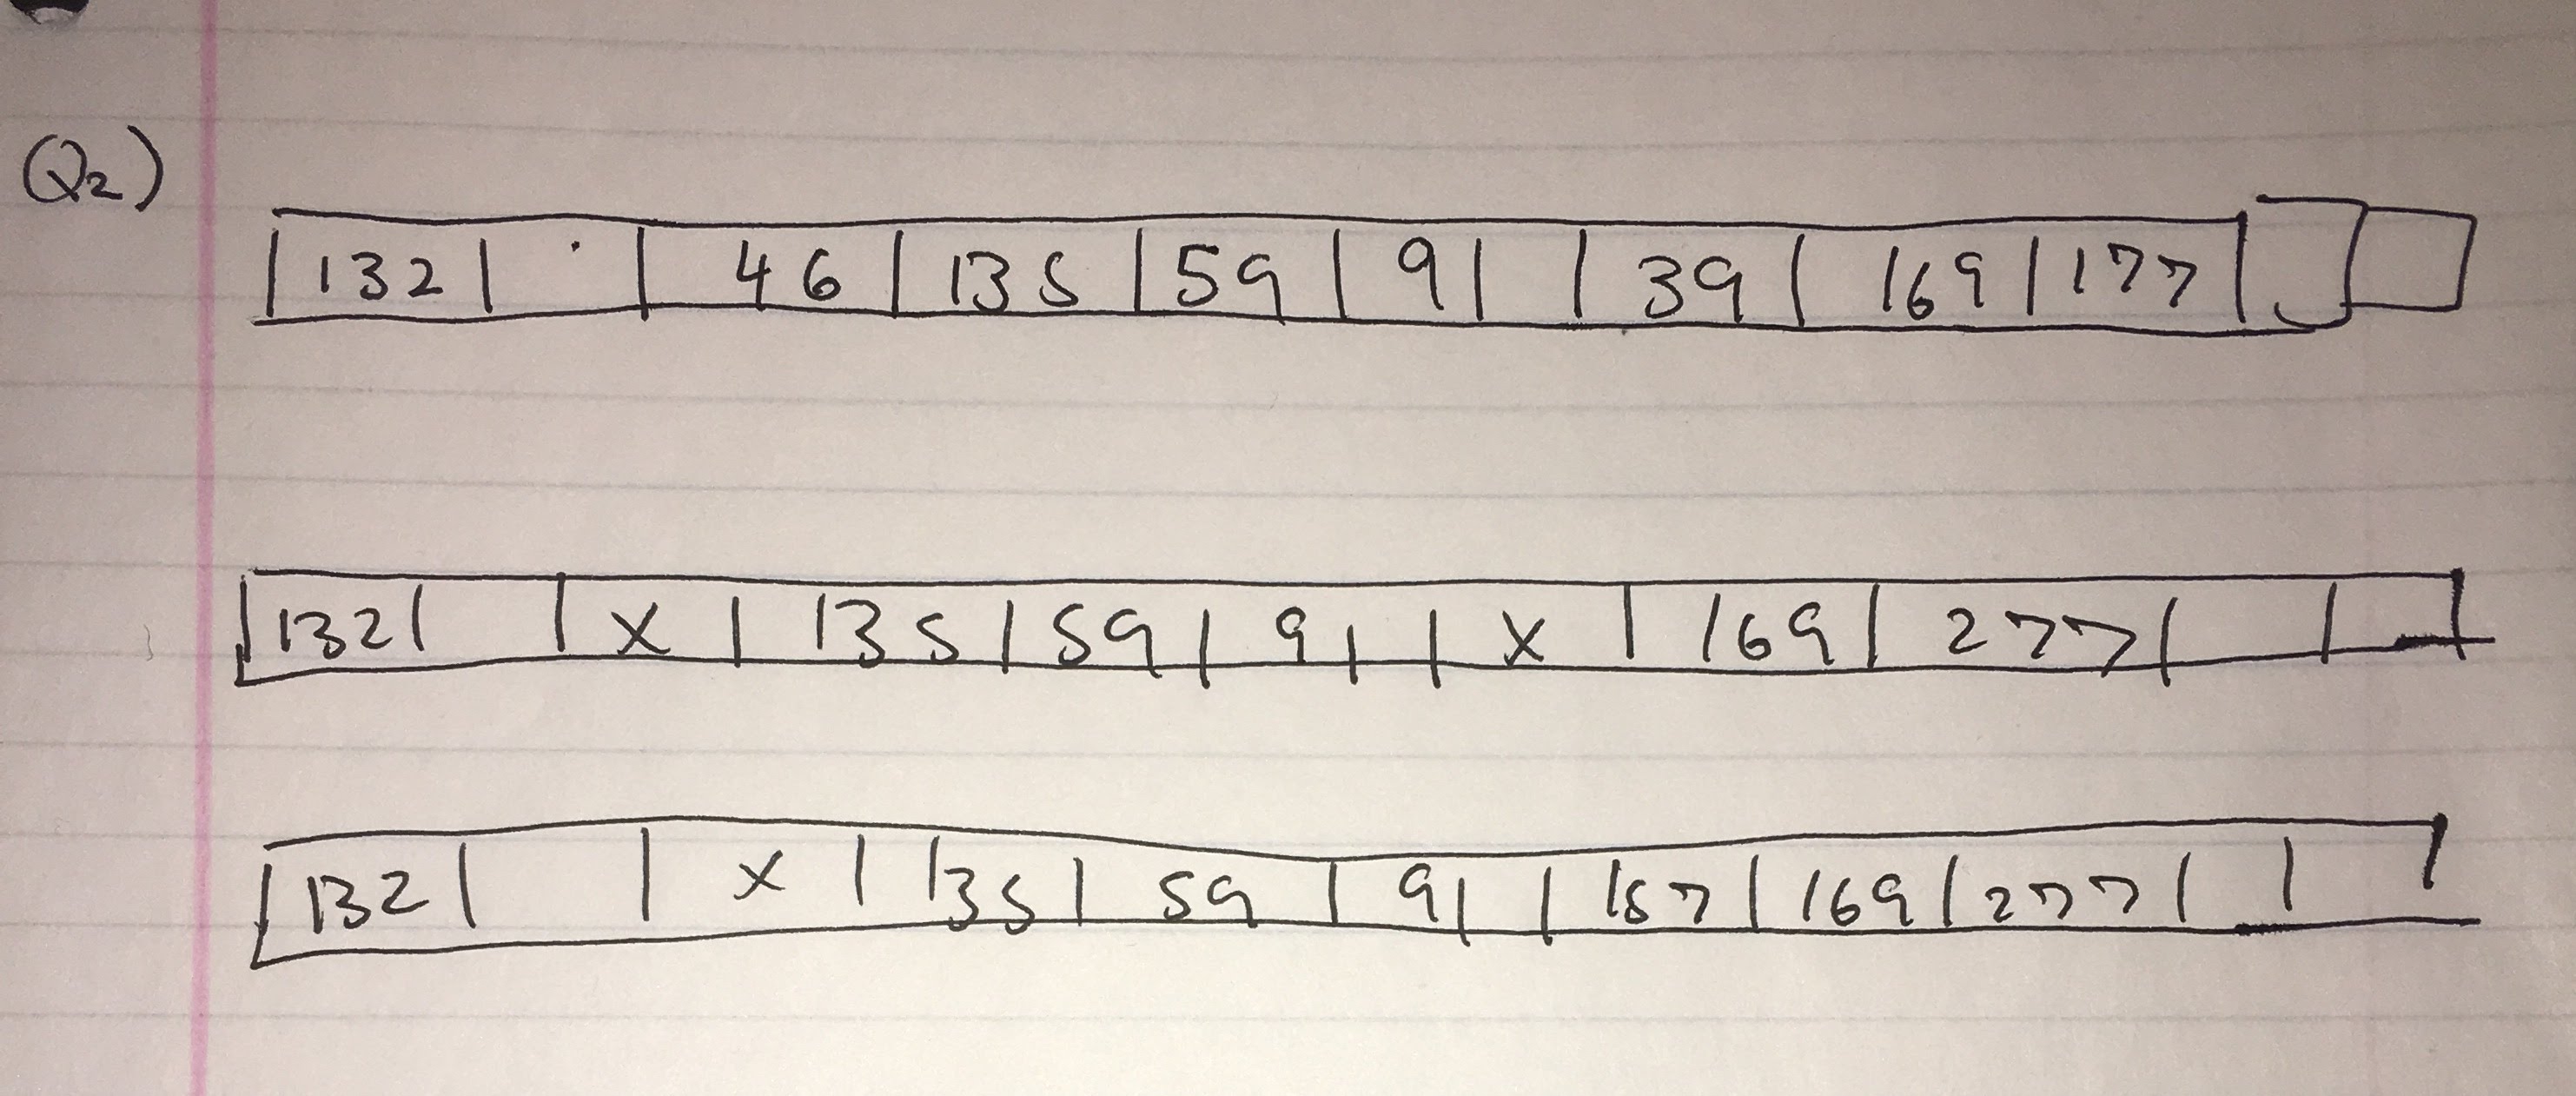 Q2)
132 46 135 59 91 39 169 177
132 x 135 59 91 x 169 277
132 x 135 59 91 157 169 277